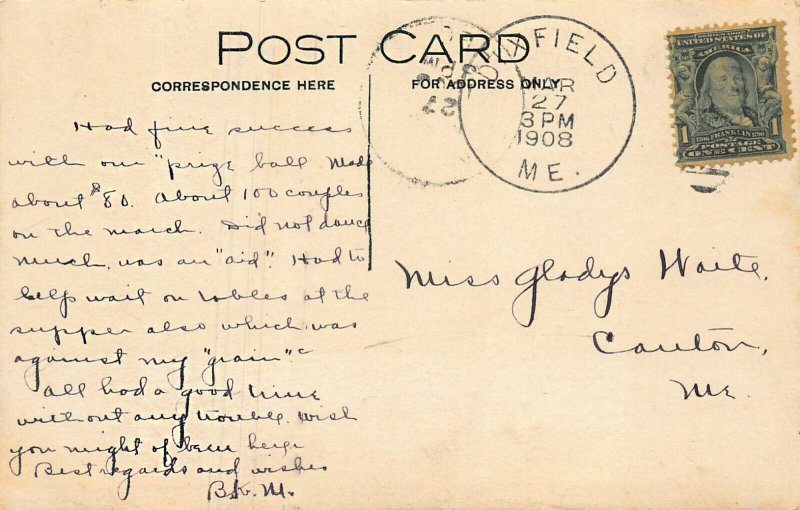 POST CARD
CORRESPONDENCE HERE
FOR ADDRESS ONLY
DIXFIELD
MAR
27
3 PM
1908
ME.
SERIES 1902
UNITED STATES OF
AMERICA
1
1706 FRANKLIN 1790
POSTAGE
ONE CENT
Had fine success
with our "prize ball. Made
about $80. About 100 couples
on the march. Did not dance
much, was an "aid". Had to
help wait on tables at the
supper also which was
against my "grain".
All had a good time
without any trouble. Wish
you might of been here
Best regards and wishes
B.K.M.
Miss Gladys Waite.
Canton,
Me.